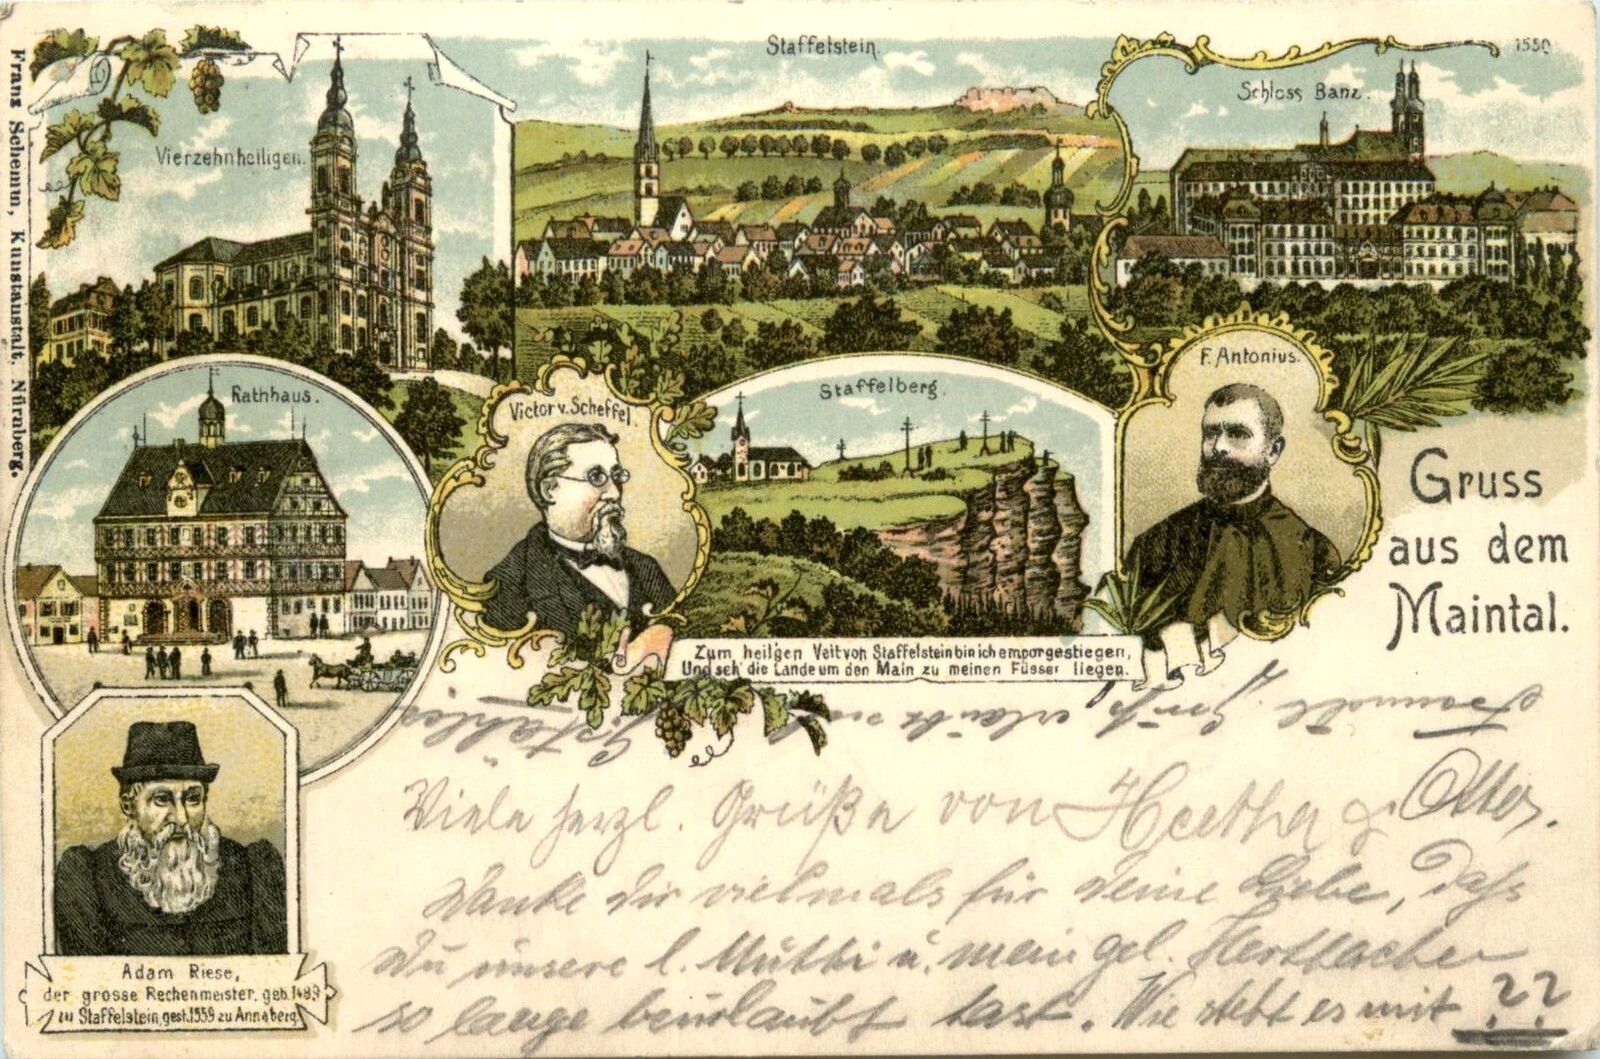 Franz Schemm, Kunstanstalt, Nürnberg.
Vierzehnheiligen.
Staffelstein.
1550
Schloss Banz.
Rathhaus.
Victor v. Scheffel.
Staffelberg.
F. Antonius.
Gruss
aus dem
Maintal.
Zum heil'gen Veit von Staffelstein bin ich emporgestiegen,
Und seh' die Lande um den Main zu meinen Füssen liegen.
Adam Riese,
der grosse Rechenmeister, geb. 1489
zu Staffelstein, gest. 1559 zu Annaberg.
Viele herzl. Grüße von Hertha u. Otto.
Danke Dir vielmals für Deine Liebe, Daß
Du unsere l. Mutti u. mein gel.
so lange beurlaubt hast. Wie steht es mit ??